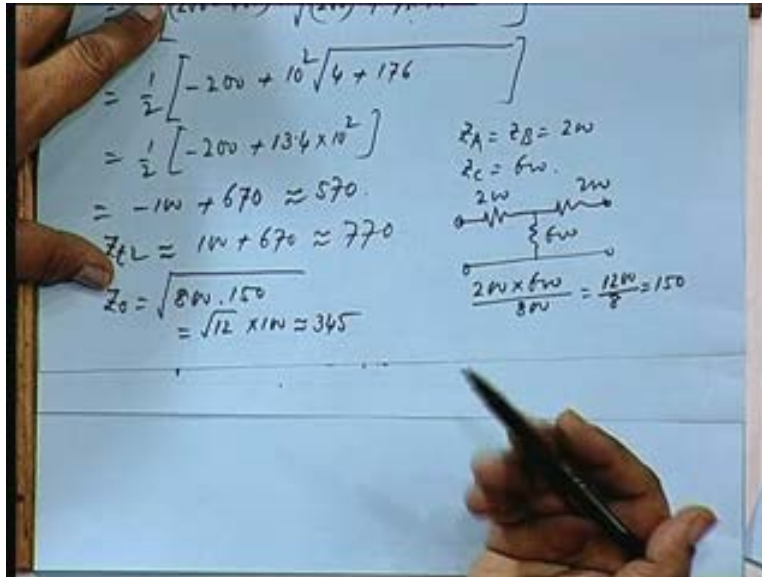 = 1/2 [-200 + 10² √4 + 176 ]
= 1/2 [-200 + 13.4 × 10²]
= -100 + 670 ≈ 570.
Z_t2 ≈ 100 + 670 ≈ 770
Z_0 = √800.150
= √12 × 100 ≈ 345
Z_A = Z_B = 200
Z_C = 600.
200 200
600
200 × 600 / 800 = 1200 / 8 = 150